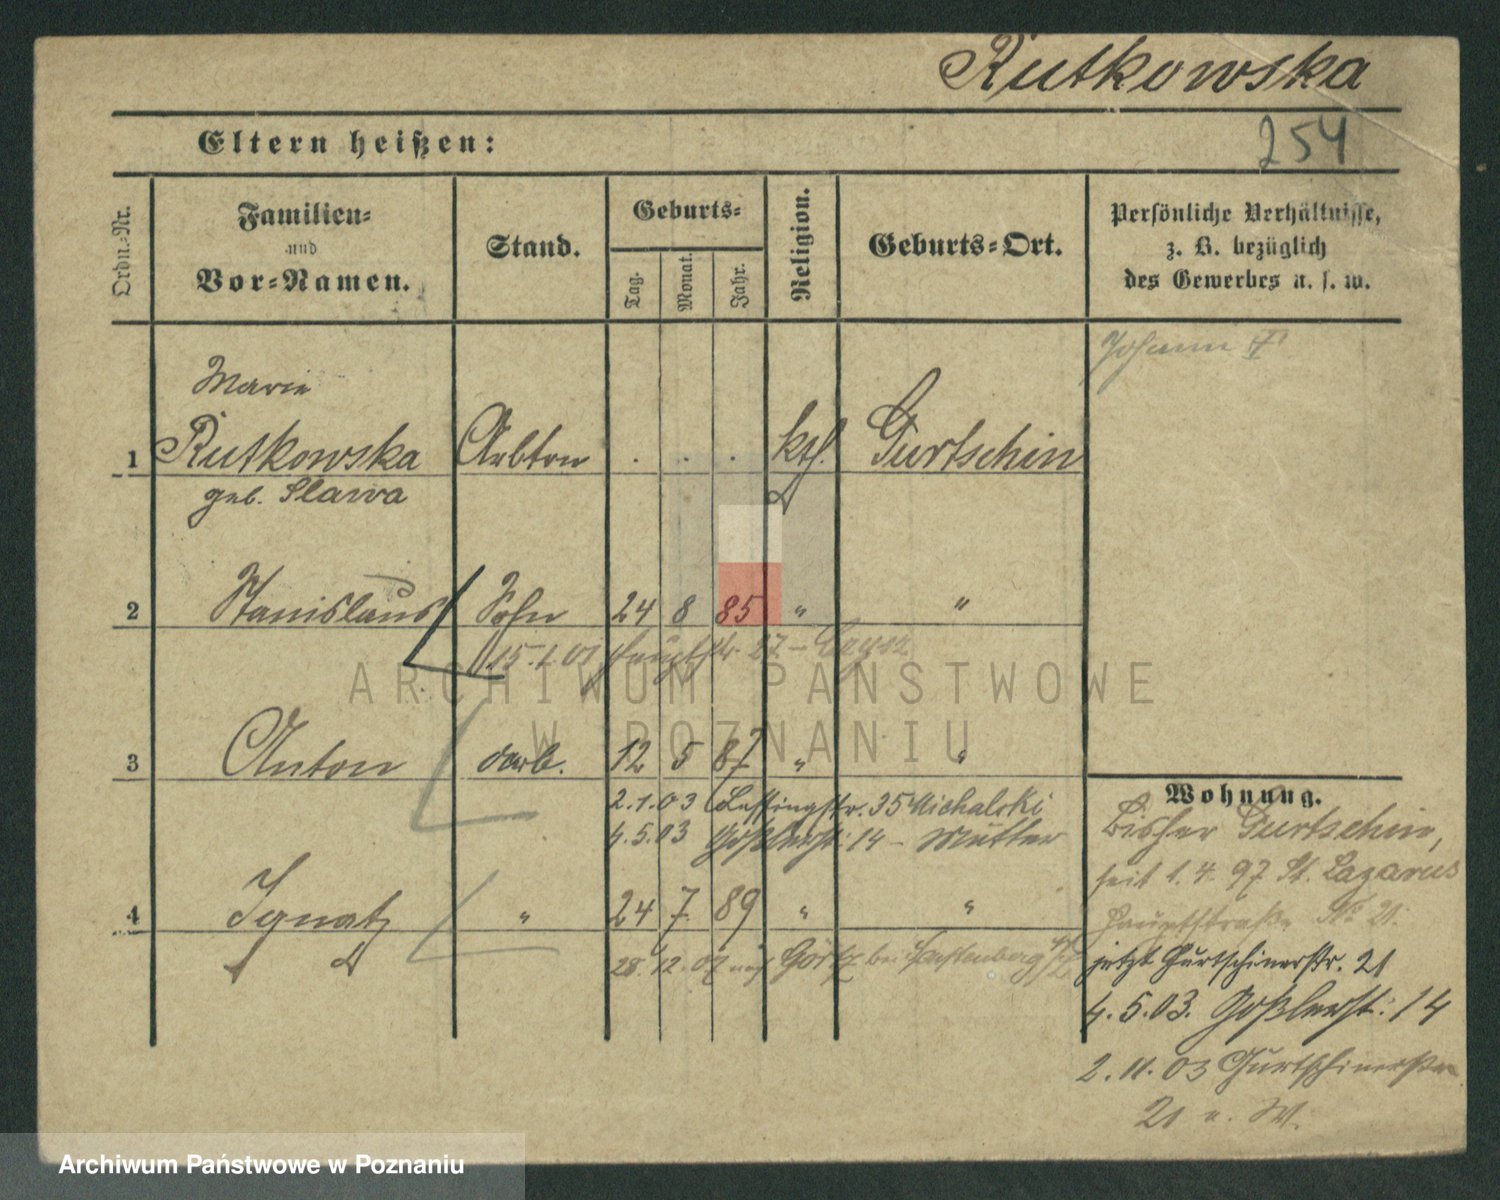 Rutkowska
254
Eltern heißen:
Ordn.-Nr.
Familien-
und
Vor-Namen.
Stand.
Geburts-
Tag.
Monat.
Jahr.
Religion.
Geburts-Ort.
Persönliche Verhältnisse,
z. B. bezüglich
des Gewerbes u. s. w.
Johann
Marie
1 Rutkowska Arbtrn . . . kth. Gurtschin
geb. Slawa
2 Stanislaus Sohn 24 8 85 " "
15.1.01 Hauptstr. 27 -
3 Anton Arb. 12 5 87 " "
2.1.03 Lessingstr. 35 Michalski
4.5.03 Goßlerstr. 14 - Mutter
4 Ignatz " 24 7 89 " "
28.12.07 nach bei
Wohnung.
Bisher Gurtschin,
seit 1.4.97 St. Lazarus
Hauptstraße No 21.
jetzt Gurtschinerstr. 21
4.5.03. Goßlerstr. 14
2.11.03 Gurtschinerstr.
21 u. W.
ARCHIWUM PAŃSTWOWE
W POZNANIU
Archiwum Państwowe w Poznaniu